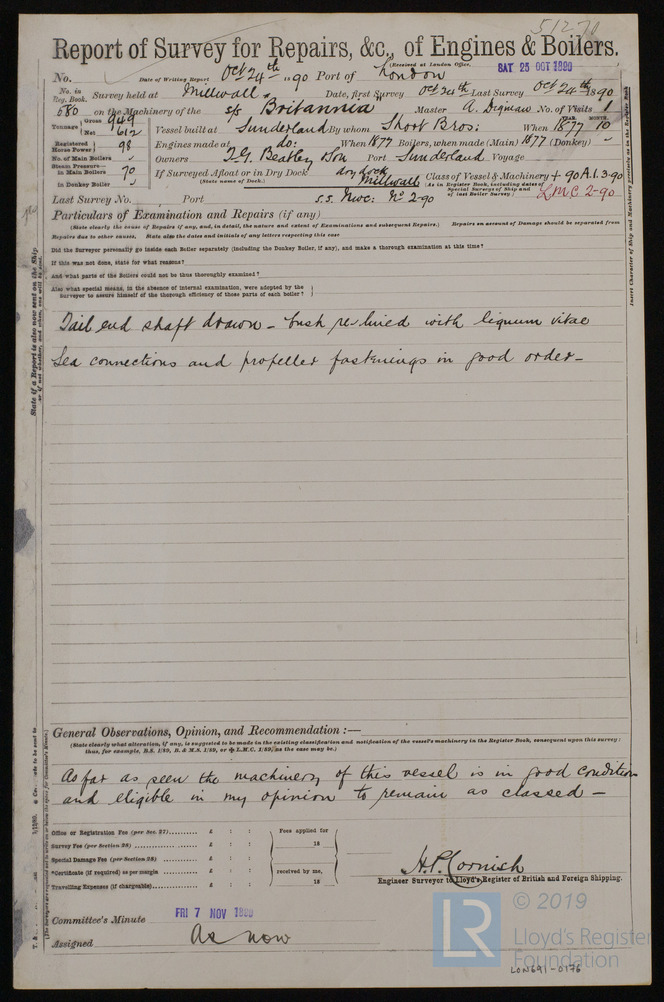 51270
Report of Survey for Repairs, &c., of Engines & Boilers.
(Received at London Office,
SAT 25 OCT 1890
No. Date of Writing Report Oct 24th 1890 Port of London
No. in Reg. Book. Survey held at Millwall Date, first Survey Oct 24th Last Survey Oct 24th 1890
680 on the Machinery of the s/s Britannia Master A. Digman No. of Visits 1
Tonnage Gross 949 Net 612 Vessel built at Sunderland By whom Short Bros: When YEAR. 1877 MONTH. 10
Registered Horse Power 98 Engines made at do: When 1877 Boilers, when made (Main) 1877 (Donkey) "
No. of Main Boilers " Owners T. G. Beatley & Son Port Sunderland Voyage
Steam Pressure in Main Boilers 70 If Surveyed Afloat or in Dry Dock dry dock Millwall Class of Vessel & Machinery + 90 A.1. 3-90
in Donkey Boiler " (State name of Dock.) (As in Register Book, including dates of Special Surveys of Ship and of last Boiler Survey) LMC 2-90
Last Survey No. Port s.s. Nwc: No 2-90
Particulars of Examination and Repairs (if any)
(State clearly the cause of Repairs if any, and, in detail, the nature and extent of Examinations and subsequent Repairs.) Repairs on account of Damage should be separated from
Repairs due to other causes. State also the dates and initials of any letters respecting this case
Did the Surveyor personally go inside each Boiler separately (including the Donkey Boiler, if any), and make a thorough examination at this time?
If this was not done, state for what reasons?
and what parts of the Boilers could not be thus thoroughly examined?
Also what special means, in the absence of internal examination, were adopted by the
Surveyor to assure himself of the thorough efficiency of those parts of each boiler?
Tail end shaft drawn - bush re-lined with lignum vitae
Sea connections and propeller fastenings in good order -
General Observations, Opinion, and Recommendation :—
(State clearly what alteration, if any, is suggested to be made in the existing classification and notification of the vessel's machinery in the Register Book, consequent upon this survey:
thus, for example, B.S. 1/89, B. & M.S. 1/89, or + L.M.C. 1/89, as the case may be.)
As far as seen the machinery of this vessel is in good condition
and eligible in my opinion to remain as classed —
Office or Registration Fee (per Sec. 27) £ : : Fees applied for
Survey Fee (per Section 28) £ : : 18
Special Damage Fee (per Section 28) £ : :
*Certificate (if required) as per margin £ : : received by me,
Travelling Expenses (if chargeable) £ : : 18
H.P. Cornish
Engineer Surveyor to Lloyd's Register of British and Foreign Shipping.
Committee's Minute FRI 7 NOV 1890
Assigned As now
LR
© 2019
Lloyd's Register
Foundation
LON691-0176
State if a Report is also now sent on the Ship
Insert Character of Ship and Machinery precisely as in the Register Book